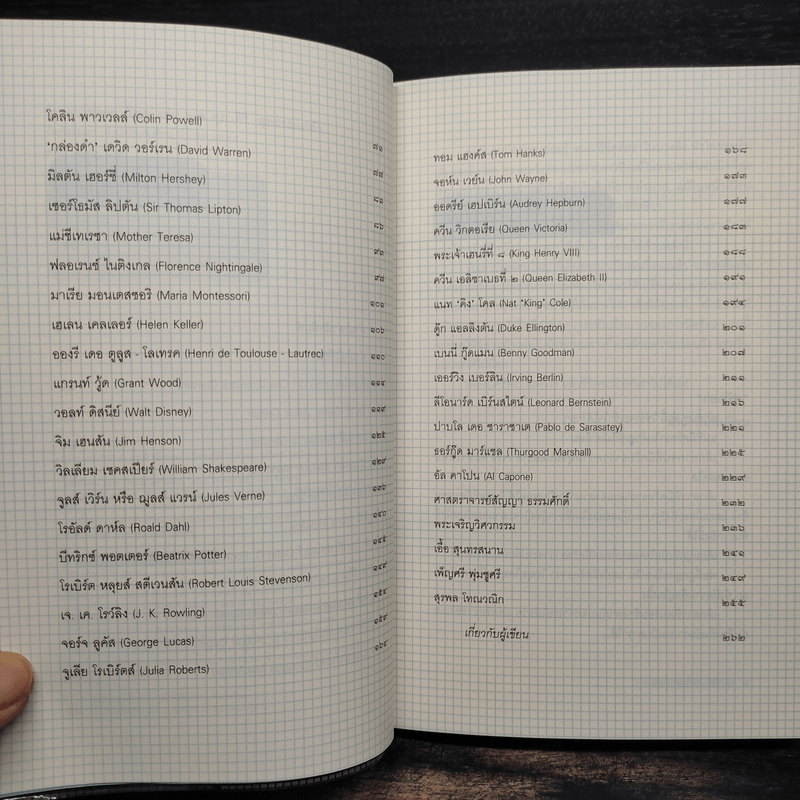 โคลิน พาวเวลล์ (Colin Powell) ๗๑
'กล่องดำ' เดวิด วอร์เรน (David Warren) ๗๗
มิลตัน เฮอร์ชี่ (Milton Hershey) ๘๑
เซอร์โธมัส ลิปตัน (Sir Thomas Lipton) ๘๖
แม่ชีเทเรซา (Mother Teresa) ๙๓
ฟลอเรนซ์ ไนติงเกล (Florence Nightingale) ๙๗
มาเรีย มอนเตสซอริ (Maria Montessori) ๑๐๑
เฮเลน เคลเลอร์ (Helen Keller) ๑๐๖
อองรี เดอ ตูลูส - โลเทรค (Henri de Toulouse - Lautrec) ๑๑๐
แกรนท์ วู้ด (Grant Wood) ๑๑๔
วอลท์ ดิสนีย์ (Walt Disney) ๑๑๙
จิม เฮนสัน (Jim Henson) ๑๒๕
วิลเลียม เชคสเปียร์ (William Shakespeare) ๑๒๙
จูลส์ เวิร์น หรือ ฌูลส์ แวรน์ (Jules Verne) ๑๓๖
โรอัลด์ ดาห์ล (Roald Dahl) ๑๔๐
บีทริกซ์ พอตเตอร์ (Beatrix Potter) ๑๔๕
โรเบิร์ต หลุยส์ สตีเวนสัน (Robert Louis Stevenson) ๑๔๙
เจ. เค. โรว์ลิง (J. K. Rowling) ๑๕๔
จอร์จ ลูคัส (George Lucas) ๑๕๙
จูเลีย โรเบิร์ตส์ (Julia Roberts) ๑๖๔
ทอม แฮงค์ส (Tom Hanks) ๑๖๘
จอห์น เวย์น (John Wayne) ๑๗๓
ออดรีย์ เฮปเบิร์น (Audrey Hepburn) ๑๗๗
ควีน วิกตอเรีย (Queen Victoria) ๑๘๓
พระเจ้าเฮนรี่ที่ ๘ (King Henry VIII) ๑๘๘
ควีน เอลิซาเบธที่ ๒ (Queen Elizabeth II) ๑๙๑
แนท 'คิง' โคล (Nat 'King' Cole) ๑๙๔
ดู๊ก แอลลิงตัน (Duke Ellington) ๒๐๑
เบนนี่ กู๊ดแมน (Benny Goodman) ๒๐๗
เออร์วิง เบอร์ลิน (Irving Berlin) ๒๑๑
ลีโอนาร์ด เบิร์นสไตน์ (Leonard Bernstein) ๒๑๖
ปาบโล เดอ ซาราซาเต (Pablo de Sarasatey) ๒๒๑
ธอร์กู๊ด มาร์แชล (Thurgood Marshall) ๒๒๕
อัล คาโปน (Al Capone) ๒๒๙
ศาสตราจารย์สัญญา ธรรมศักดิ์ ๒๓๒
พระเจริญวิศวกรรม ๒๓๖
เอื้อ สุนทรสนาน ๒๔๑
เพ็ญศรี พุ่มชูศรี ๒๔๙
สุรพล โทณวณิก ๒๕๕
เกี่ยวกับผู้เขียน ๒๖๒